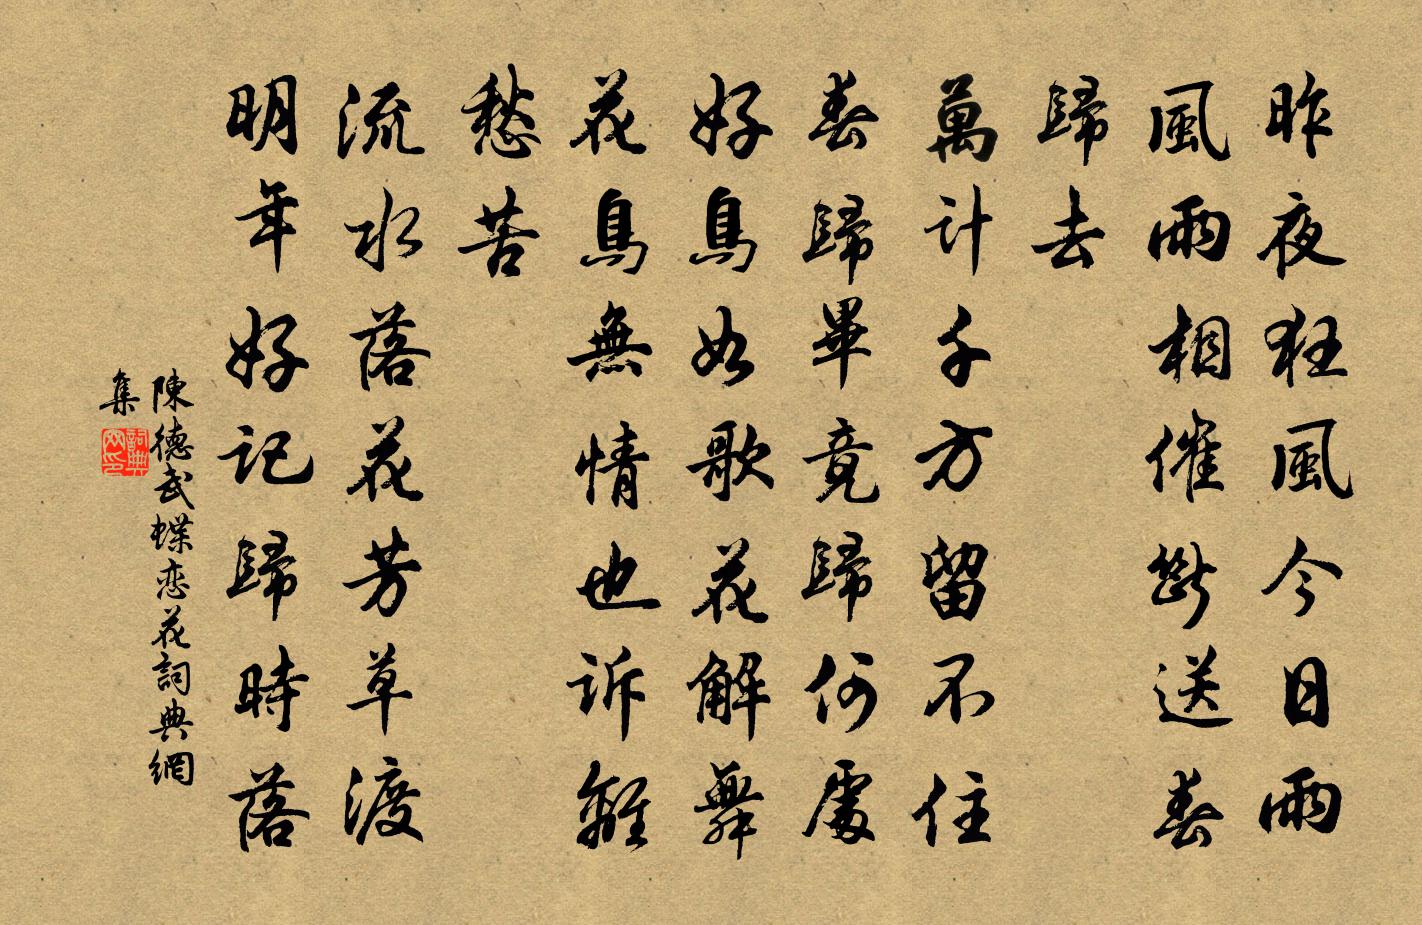 昨夜狂風今日雨
風雨相催斷送春
歸去
萬計千方留不住
春歸畢竟歸何處
好鳥如歌花解舞
花鳥無情也訴離
愁苦
流水落花芳草渡
明年好記歸時落
陳德武蝶恋花詞典網
集
詞典網印